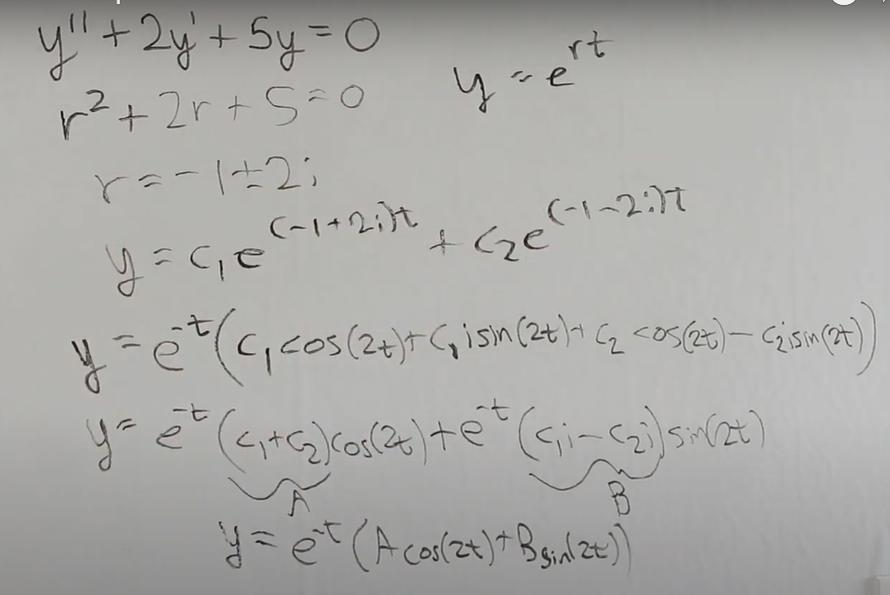 y'' + 2y' + 5y = 0
y = e^{rt}
r² + 2r + 5 = 0
r = -1 ± 2i
y = c₁e^{(-1+2i)t} + c₂e^{(-1-2i)t}
y = e^{-t}(c₁cos(2t) + c₁isin(2t) + c₂cos(2t) - c₂isin(2t))
y = e^{-t}(c₁+c₂)cos(2t) + e^{-t}(c₁i - c₂i)sin(2t)
A B
y = e^{-t}(Acos(2t) + Bsin(2t))